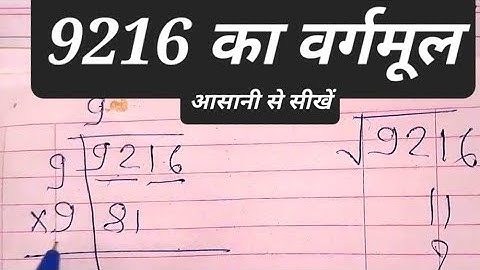 9216 का वर्गमूल
आसानी से सीखें
9
9 9216
×9 81
√9216
11
9